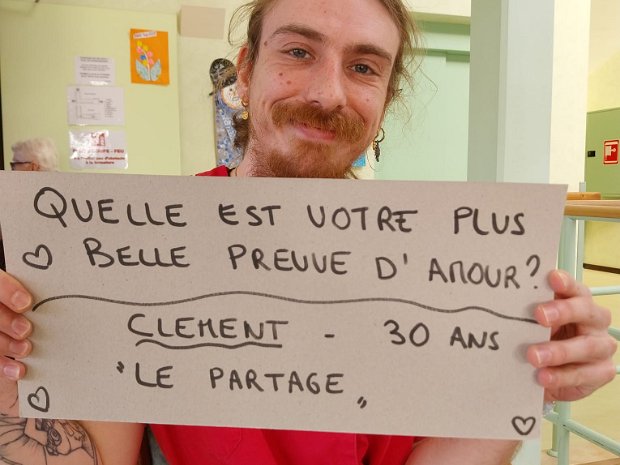 QUELLE EST VOTRE PLUS
BELLE PREUVE D'AMOUR?
CLEMENT - 30 ANS
"LE PARTAGE"